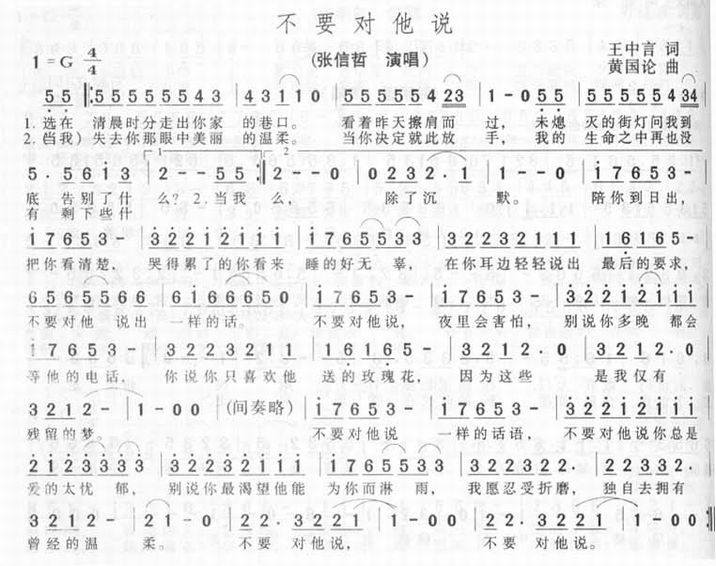 不要对他说
(张信哲 演唱)
王中言 词
黄国论 曲
1=G 4/4
5 5 |: 5 5 5 5 5 5 4 3 | 4 3 1 1 0 | 5 5 5 5 5 4 23 | 1 - 0 5 5 | 5 5 5 5 5 5 4 34 |
1. 选在 清晨时分走出你家 的巷口。 看着昨天擦肩而 过, 未熄 灭的街灯问我到
2. (当我) 失去你那眼中美丽 的温柔。 当你决定就此放 手, 我的 生命之中再也没
5 · 5 6 1 3 | 2 - - 5 5 :| 2 - - 0 | 0 2 3 2 · 1 | 1 - - 0 | 1 7 6 5 3 - |
底 告别了什 么? 2. 当我 么, 除了沉 默。 陪你到日出,
有 剩下些什
1 7 6 5 3 - | 3 2 2 1 2 1 1 1 | 1 7 6 5 5 3 3 | 3 2 2 3 2 1 1 1 | 1 6 1 6 5 - |
把你看清楚, 哭得累了的你看来 睡的好无 辜, 在你耳边轻轻说出 最后的要求,
6 5 6 5 5 5 6 6 | 6 1 6 6 6 5 0 | 1 7 6 5 3 - | 1 7 6 5 3 - | 3 2 2 1 2 1 1 1 |
不要对他 说出 一样的话。 不要对他说, 夜里会害怕, 别说你多晚 都会
1 7 6 5 3 - | 3 2 2 3 2 1 1 | 1 6 1 6 5 - | 3 2 1 2 · 0 | 3 2 1 2 · 0 |
等他的电话, 你说你只喜欢他 送的玫瑰花, 因为这些 是我仅有
3 2 1 2 - | 1 - 0 0 | (间奏略) | 1 7 6 5 3 - | 1 7 6 5 3 - | 3 2 2 1 2 1 1 1 |
残留的梦 不要对他说 一样的话语, 不要对他说你总是
2 1 2 3 3 3 3 | 3 2 2 3 2 1 1 1 | 1 7 6 5 5 3 3 | 3 2 2 3 2 2 · | 2 2 3 3 2 · |
爱的太忧 郁, 别说你最渴望他能 为你而淋 雨, 我愿忍受折磨, 独自去拥有
3 2 1 2 - | 2 1 - 0 | 2 2 · 3 2 2 1 | 1 - 0 0 | 2 2 · 3 2 2 1 | 1 - 0 0 :|
曾经的温 柔。 不要 对他说, 不要 对他说。